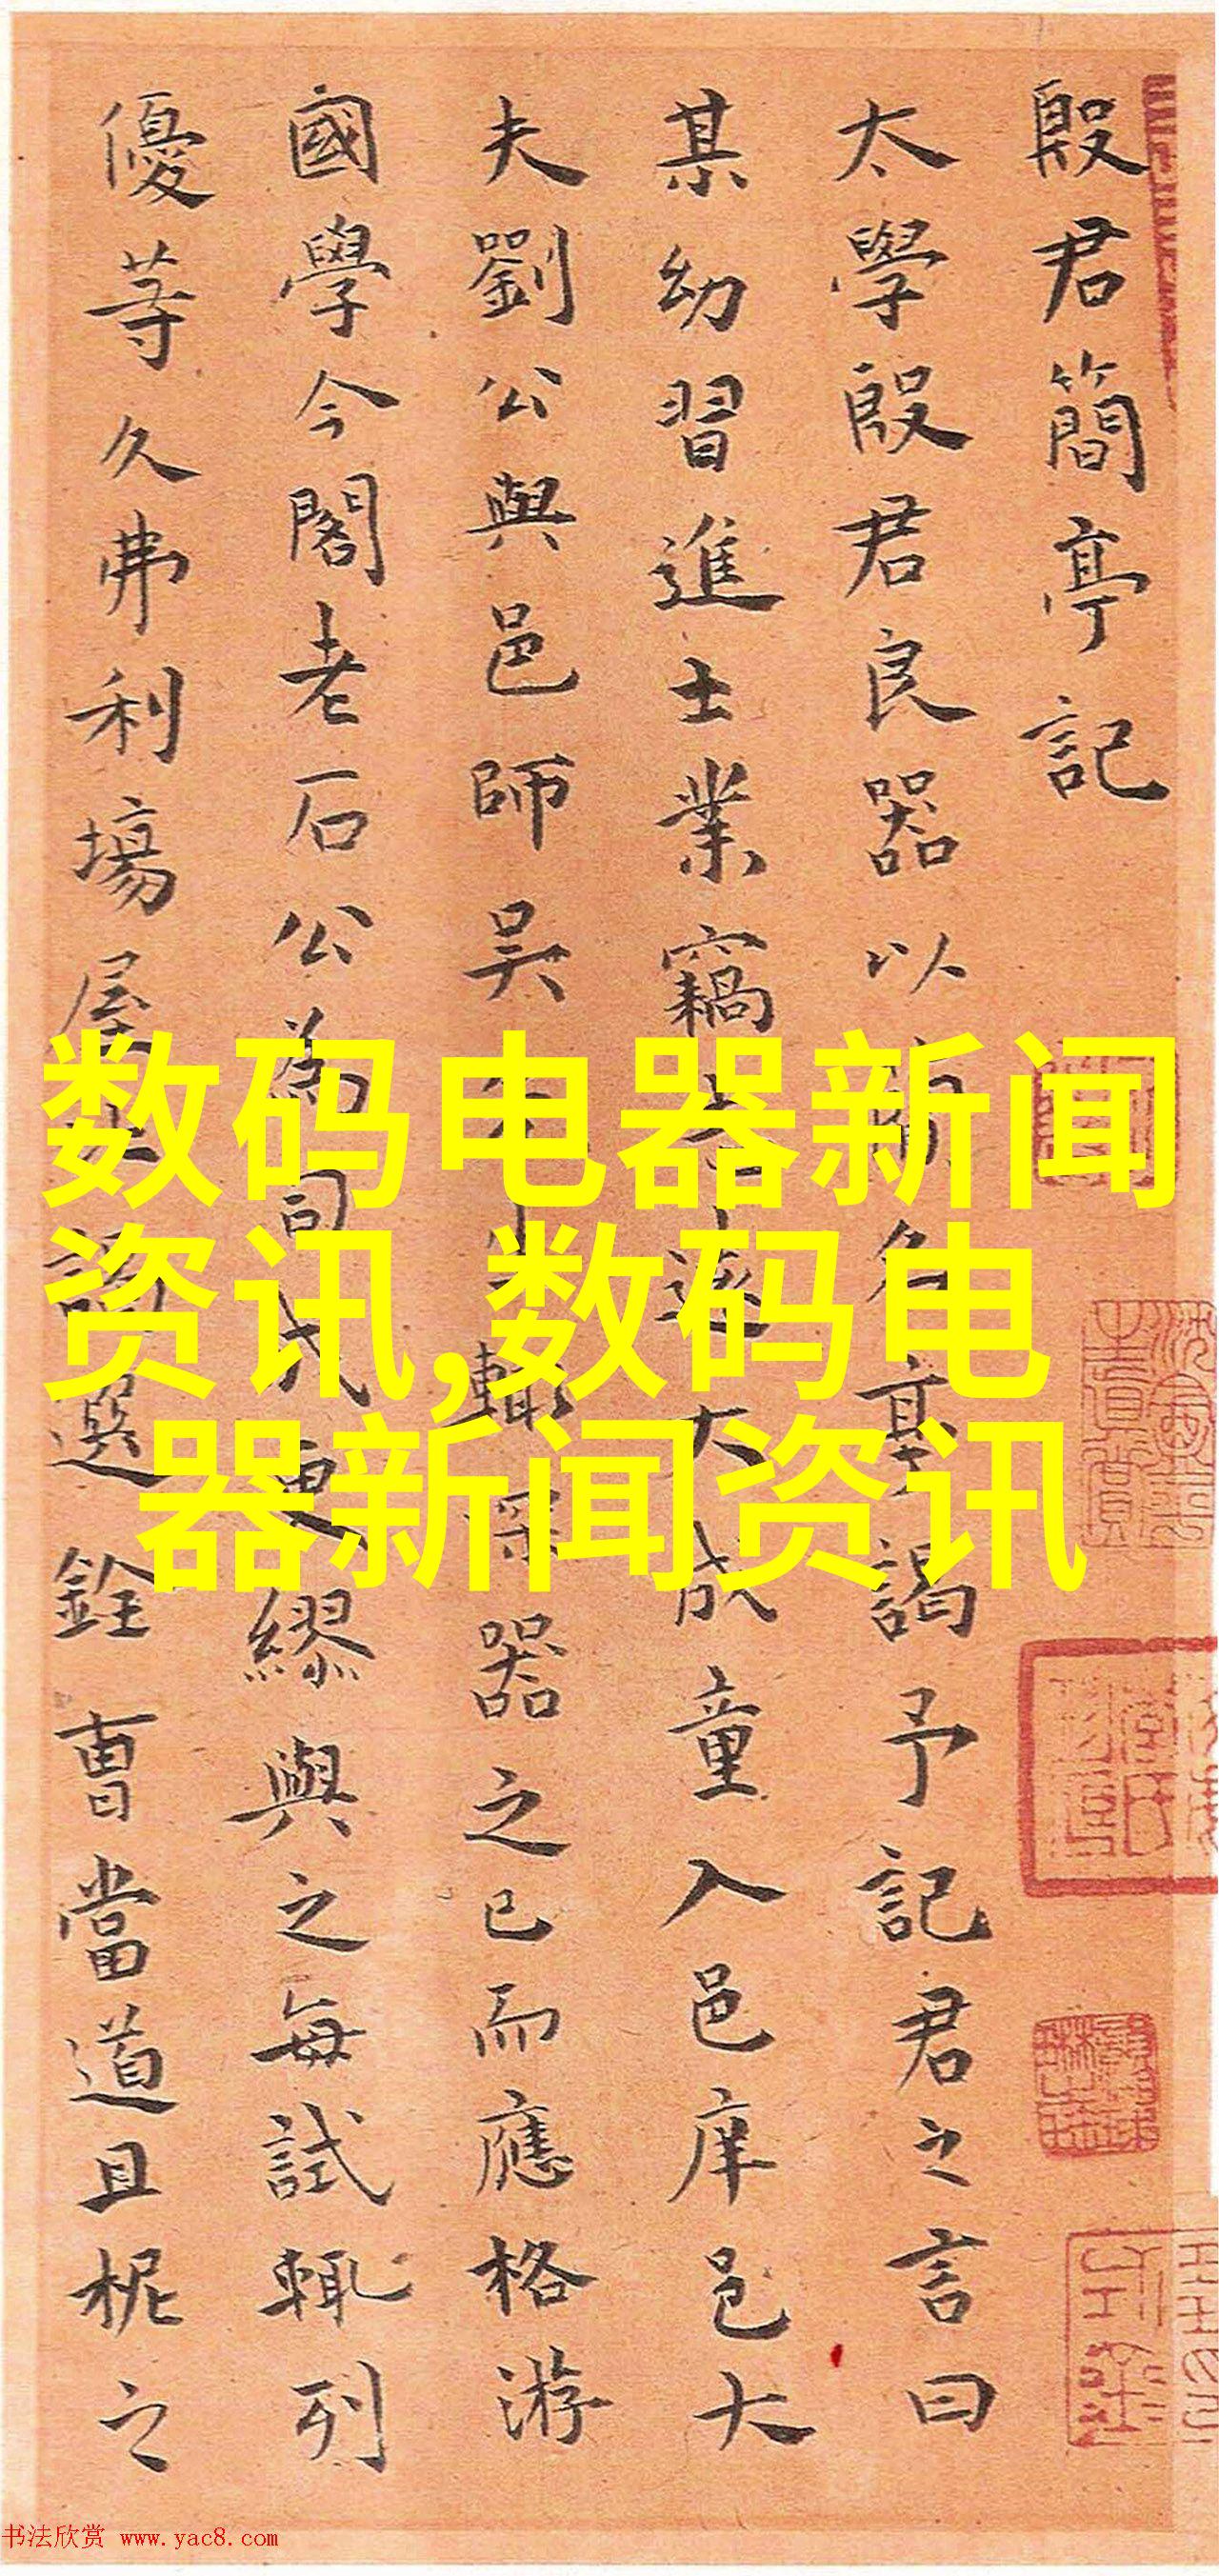 殷君簡亭記
太學殷君良器以名亭謁予記君之言曰
某幼習進士業竊速大成童入邑庠邑大
夫劉公與邑師吳先生輙深器之已而應格游
國學今閣老石公為司成更繆與之每試輙列
優等久弗利場屋選銓曹當道且柅之
数码电器新闻
资讯,数码电
器新闻资讯
书法欣赏 www.yac8.com